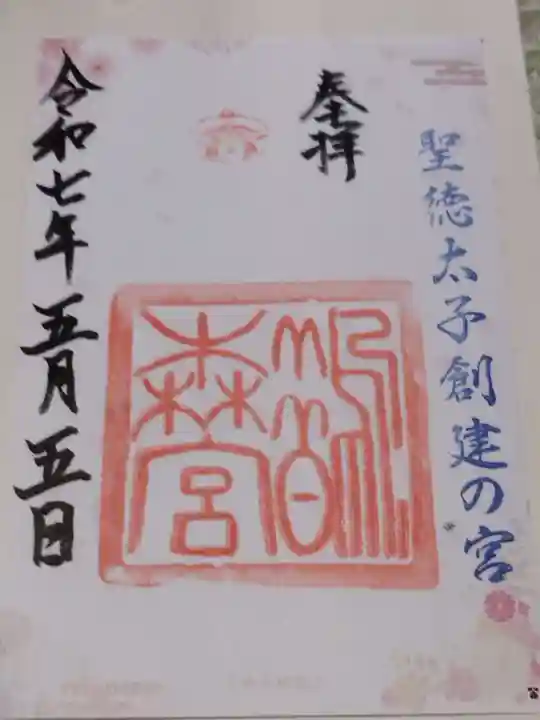 聖徳太子創建の宮
奉拝
鵲森宮
令和七年五月五日